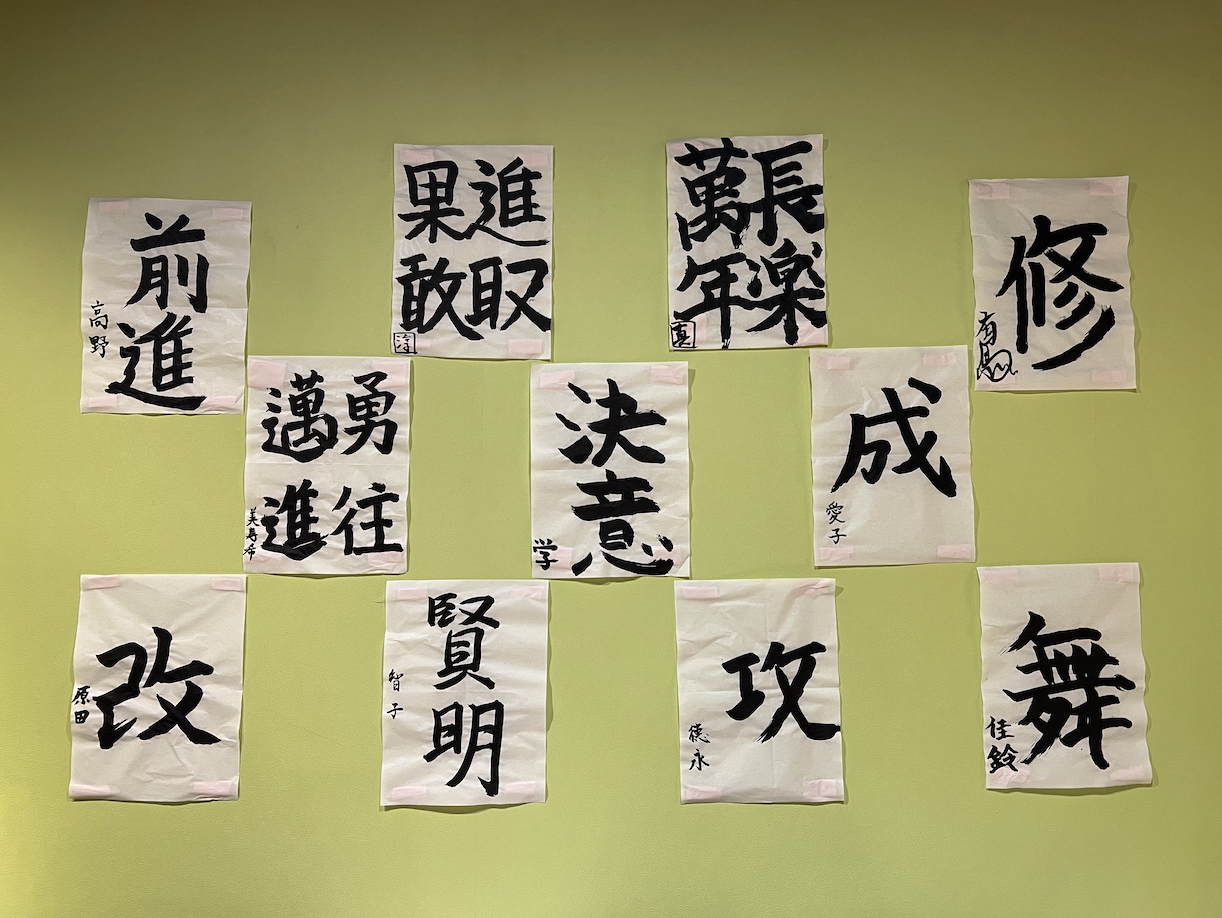 前進
高野
進取
果敢
淳
長楽
萬年
真
修
有
勇往
邁進
美寿希
決意
学
成
愛子
改
原田
賢明
智子
攻
徳永
舞
佳鈴